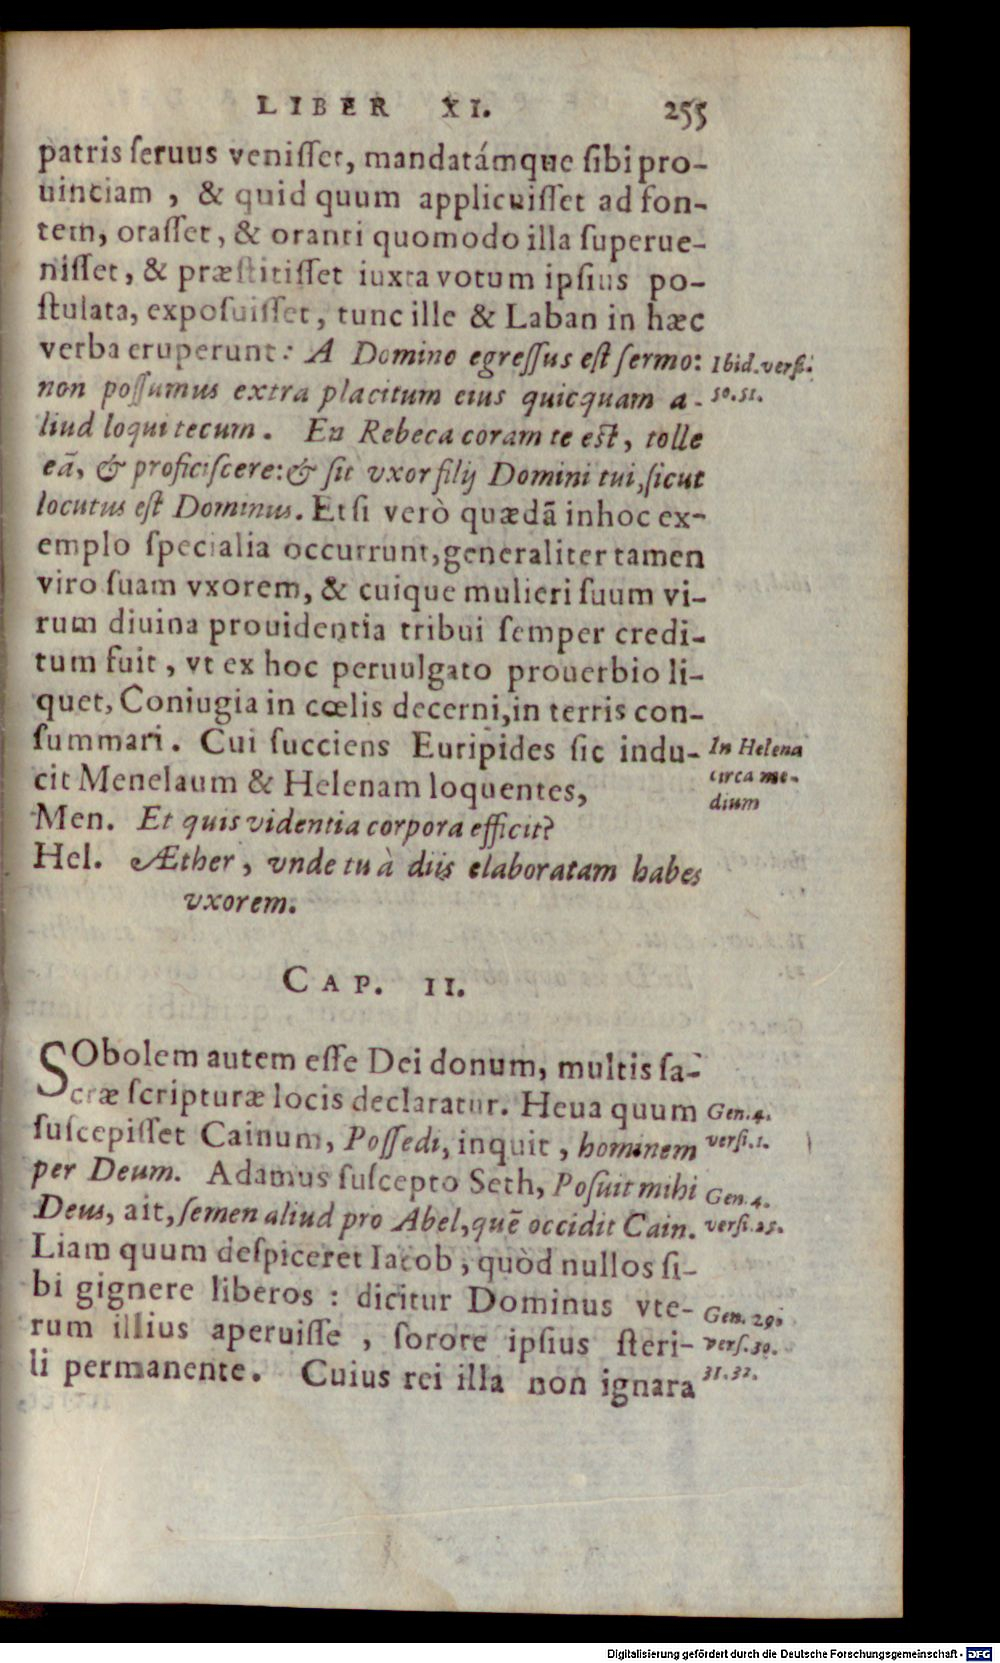 LIBER XI. 255
patris ſeruus veniſſet, mandatámque ſibi pro-
uinciam , & quid quum applicuiſſet ad fon-
tem, oraſſet, & oranti quomodo illa ſuperue-
niſſet, & præſtitiſſet iuxta votum ipſius po-
ſtulata, expoſuiſſet, tunc ille & Laban in hæc
verba eruperunt: A Domino egreſſus eſt ſermo:
non poſſumus extra placitum eius quicquam a-
liud loqui tecum. En Rebeca coram te eſt, tolle
eã, & proficiſcere: & ſit vxor filij Domini tui, ſicut
locutus eſt Dominus. Etſi verò quædã in hoc ex-
emplo ſpecialia occurrunt, generaliter tamen
viro ſuam vxorem, & cuique mulieri ſuum vi-
rum diuina prouidentia tribui ſemper credi-
tum fuit, vt ex hoc peruulgato prouerbio li-
quet, Coniugia in cœlis decerni, in terris con-
ſummari. Cui ſucciens Euripides ſic indu-
cit Menelaum & Helenam loquentes,
Men. Et quis videntia corpora efficit?
Hel. Æther, vnde tu à diis elaboratam habes
vxorem.
Ibid. verſi.
50.51.
In Helena
circa me-
dium
CAP. II.
SObolem autem eſſe Dei donum, multis ſa-
cræ ſcripturæ locis declaratur. Heua quum
ſuſcepiſſet Cainum, Poſſedi, inquit, hominem
per Deum. Adamus ſuſcepto Seth, Poſuit mihi
Deus, ait, ſemen aliud pro Abel, quẽ occidit Cain.
Liam quum deſpiceret Iacob, quòd nullos ſi-
bi gignere liberos : dicitur Dominus vte-
rum illius aperuiſſe , ſorore ipſius ſteri-
li permanente. Cuius rei illa non ignara
Gen. 4.
verſi. 1.
Gen. 4.
verſi. 25.
Gen. 29.
verſ. 30.
31.32.
Digitalisierung gefördert durch die Deutsche Forschungsgemeinschaft - DFG